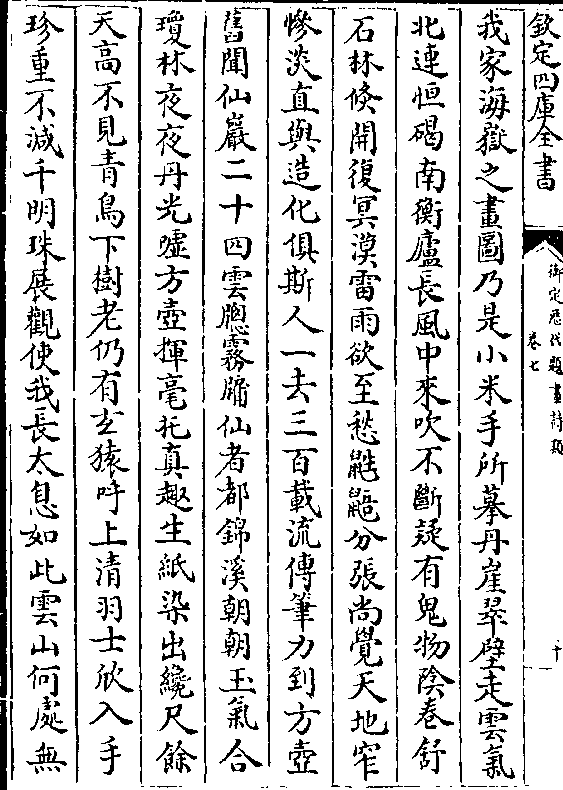 欽定四庫全書
御定歴代題畫詩類
卷七
十
我家海嶽之畫圖乃是小米手所摹丹崖翠壁走雲氣
北連恒碣南衡廬長風中來吹不斷疑有鬼物陰卷舒
石林倐開復冥漠雷雨欲至愁鼪鼯分張尚覺天地窄
慘淡直與造化俱斯人一去三百載流傳筆力到方壺
舊聞仙巖二十四雲牕霧牖仙者都錦溪朝朝玉氣合
瓊林夜夜丹光嘘方壺揮毫托真趣生紙染出纔尺餘
天高不見青鳥下樹老仍有玄猿呼上清羽士欣入手
珍重不減千明珠展觀使我長太息如此雲山何處無